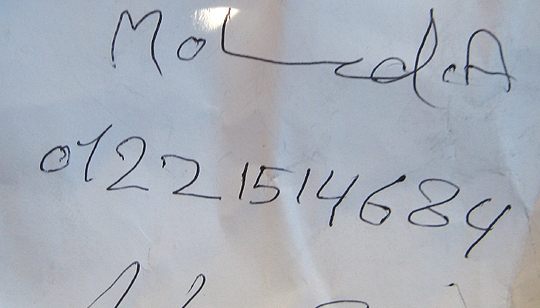 Mohamed.A
01221514684